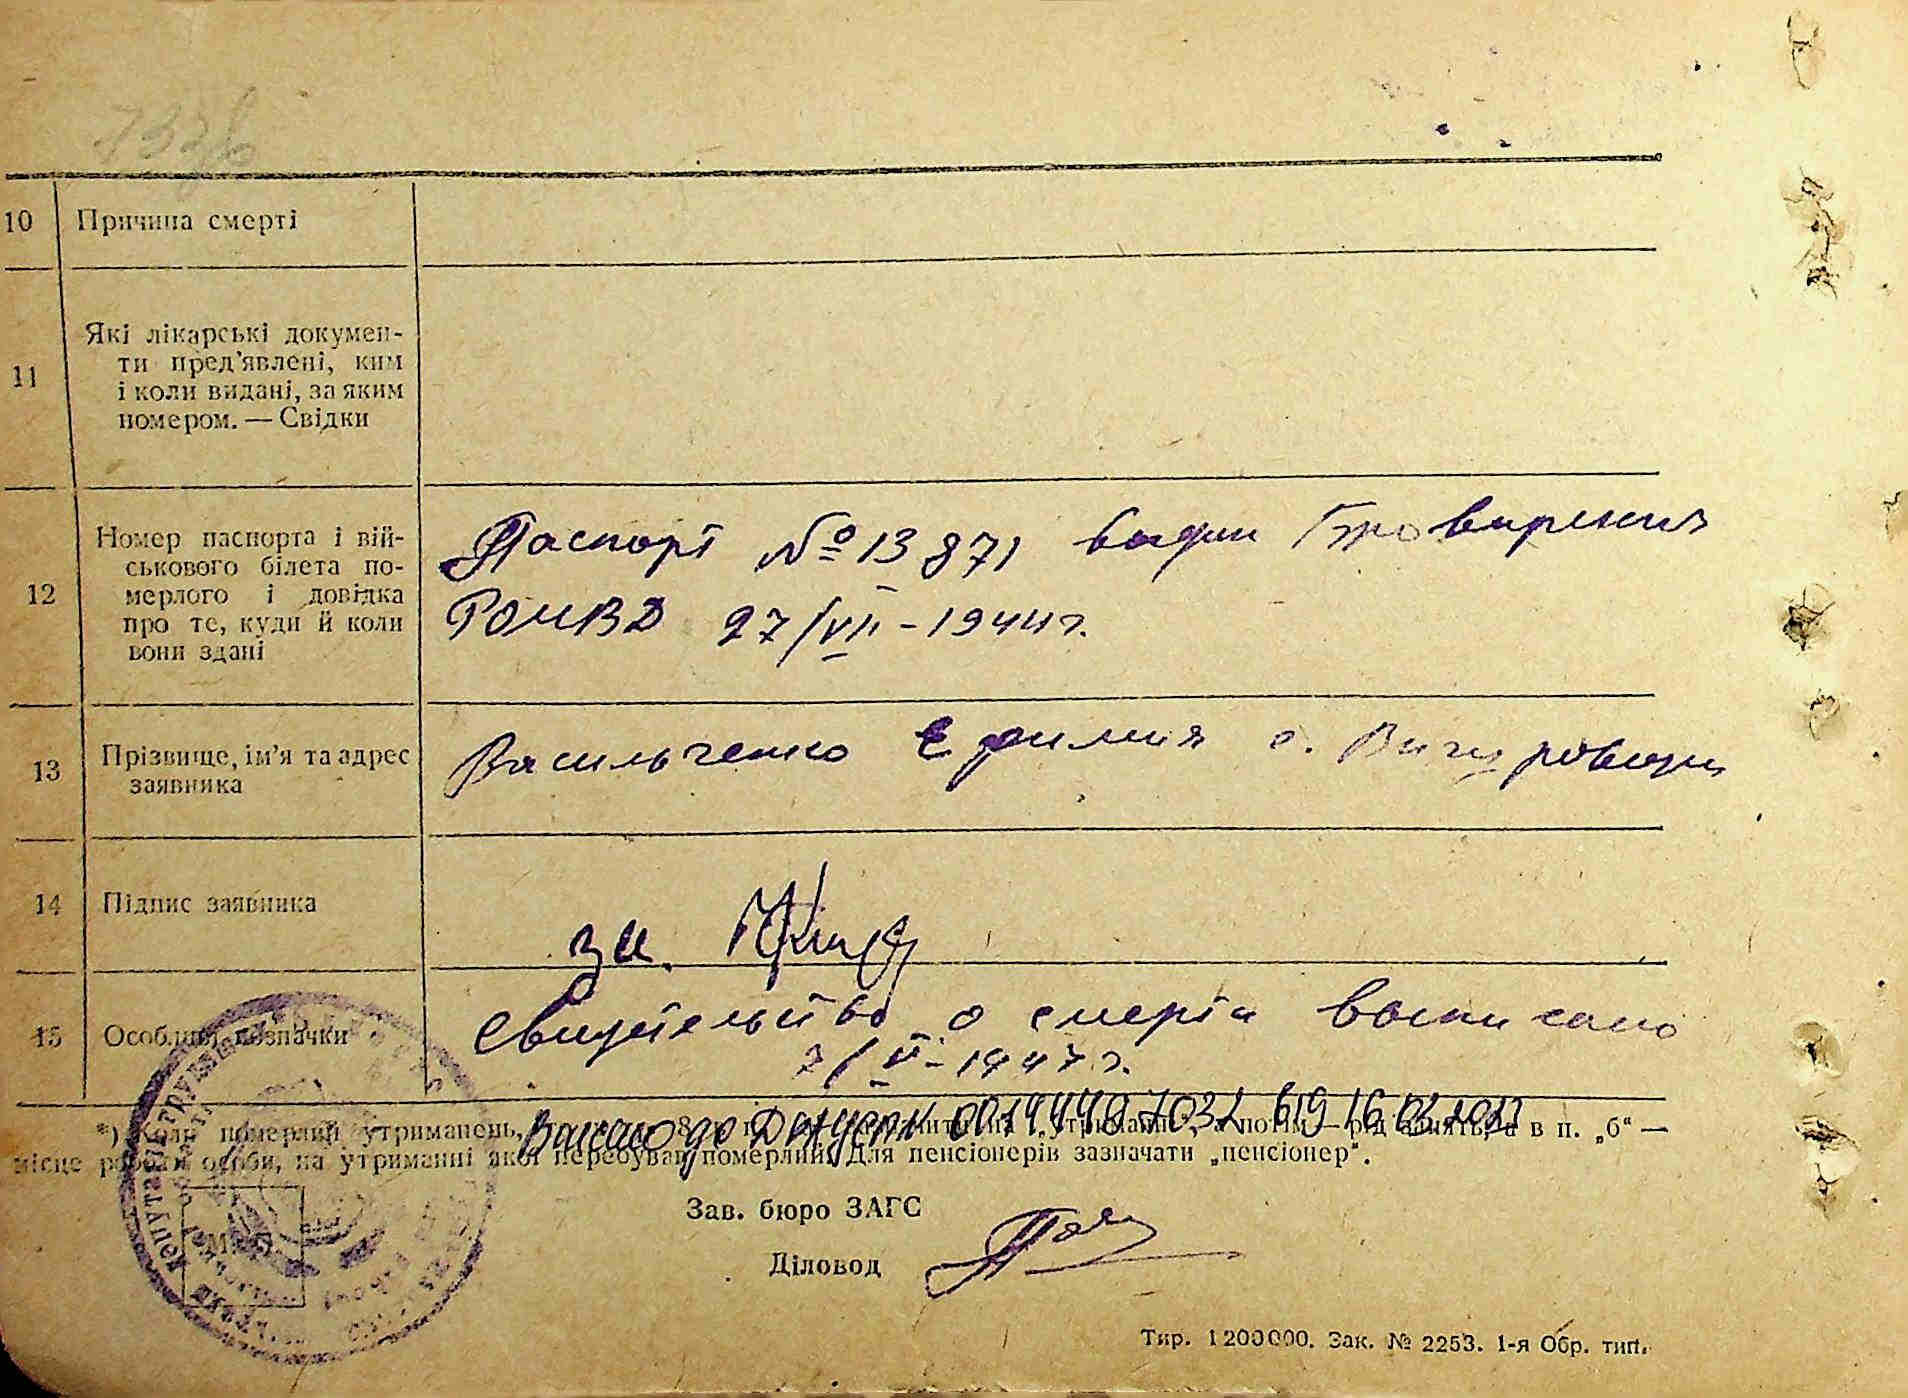 10 Причина смерті
11 Які лікарські докумен-
ти пред'явлені, ким
і коли видані, за яким
номером. — Свідки
12 Номер паспорта і вій-
ськового білета по-
мерлого і довідка
про те, куди й коли
вони здані
Паспорт № 13871 выдан Броварским
РОМВД 27/VII - 1944 г.
13 Прізвище, ім'я та адрес
заявника
Васильченко Ефимия с.
14 Підпис заявника
за.
15 Особливі позначки
Свидетельство о смерти выписано
7/V - 1947 г.
*) Коли померлий утриманець,
місце роботи особи, на утриманні якої перебував померлий. Для пенсіонерів зазначати „пенсіонер“.
Зав. бюро ЗАГС
Діловод
М. П.
Тир. 1200000. Зак. № 2253. 1-я Обр. тип.